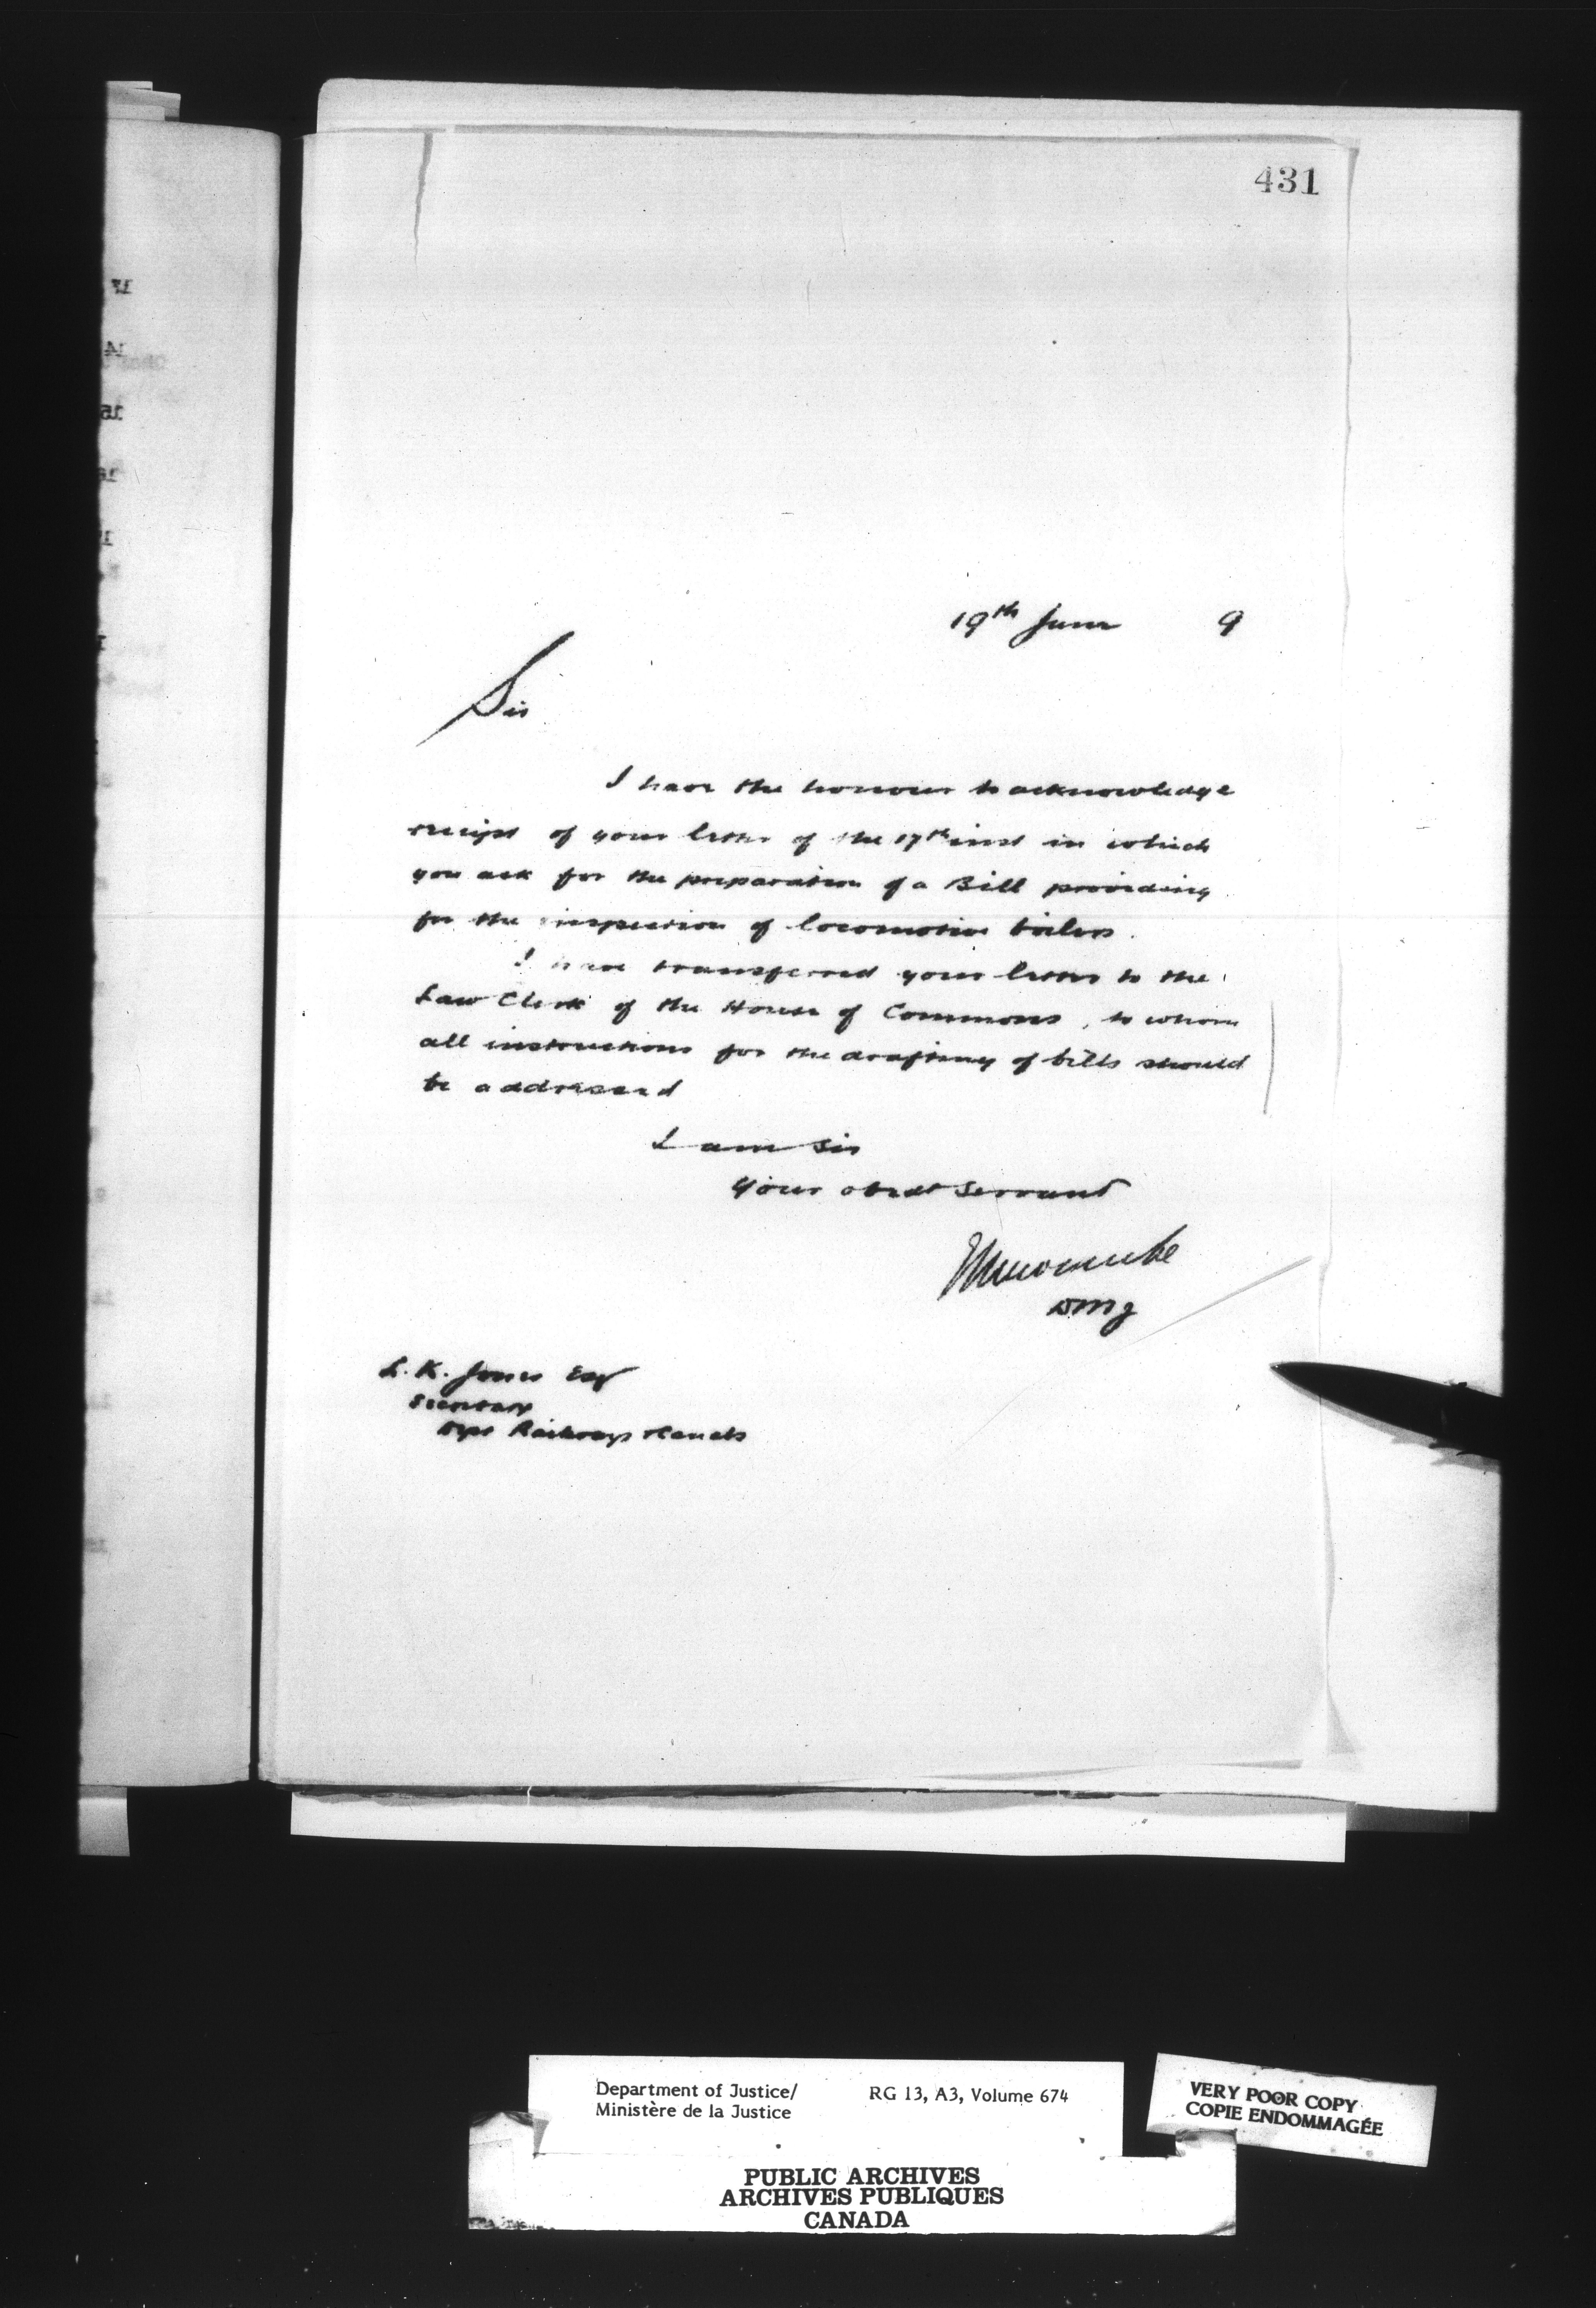 431
19th June 9
Sir
I have the honour to acknowledge
receipt of your letter of the 17th inst in which
you ask for the preparation of a Bill providing
for the inspection of locomotive boilers.
I have transferred your letter to the
Law Clerk of the House of Commons, to whom
all instructions for the drafting of bills should
be addressed
I am Sir
Your obedt Servant
DMJ
L. K. Jones Esq
Secretary
Dept Railways & Canals
Department of Justice/ RG 13, A3, Volume 674
Ministère de la Justice
VERY POOR COPY
COPIE ENDOMMAGÉE
PUBLIC ARCHIVES
ARCHIVES PUBLIQUES
CANADA